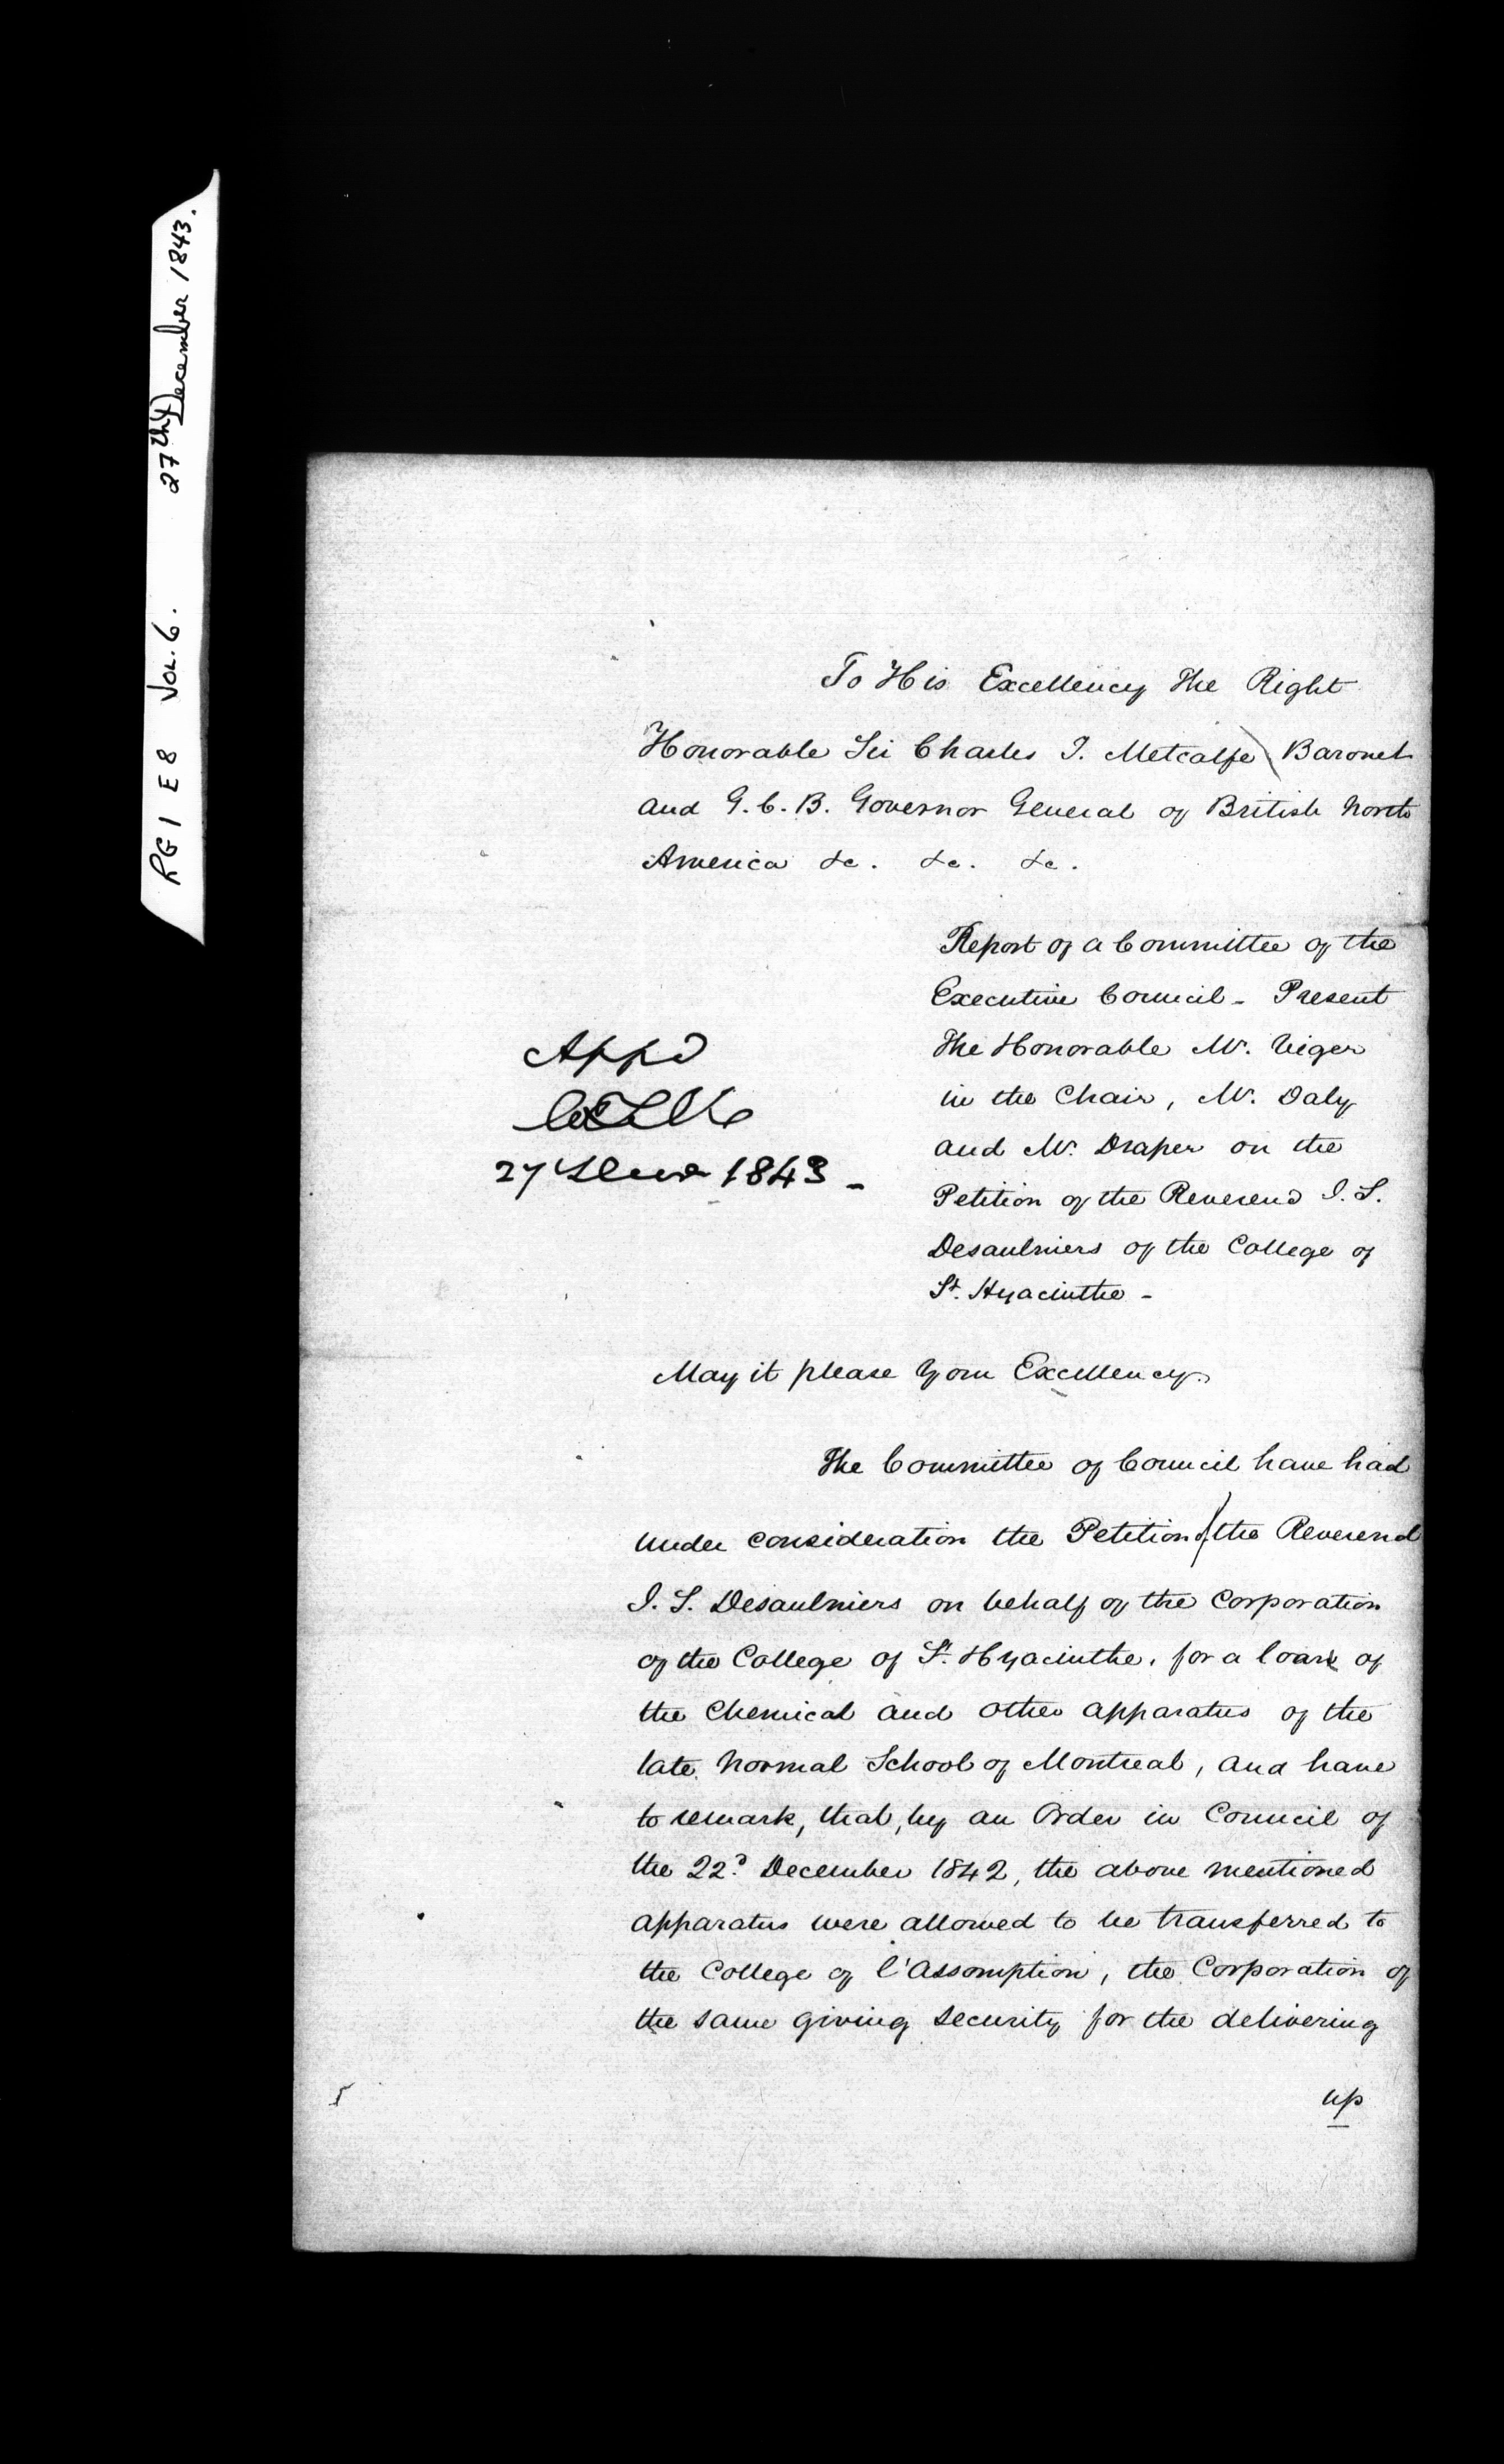 RG1 E8 Vol. 6. 27th December 1843.
To His Excellency The Right
Honorable Sir Charles T. Metcalfe Baronet
and G.C.B. Governor General of British North
America &c. &c. &c.
Report of a Committee of the
Executive Council - Present
The Honorable Mr. Viger
in the Chair, Mr. Daly
and Mr. Draper on the
Petition of the Reverend I. S.
Desaulniers of the College of
St. Hyacinthe -
Appd
27 1843 -
May it please Your Excellency.
The Committee of Council have had
under consideration the Petition of the Reverend
I. S. Desaulniers on behalf of the Corporation
of the College of St. Hyacinthe, for a loan of
the Chemical and other apparatus of the
late Normal School of Montreal, and have
to remark, that, by an Order in Council of
the 22d December 1842, the above mentioned
apparatus were allowed to be transferred to
the College of l'Assomption, the Corporation of
the same giving security for the delivering
up